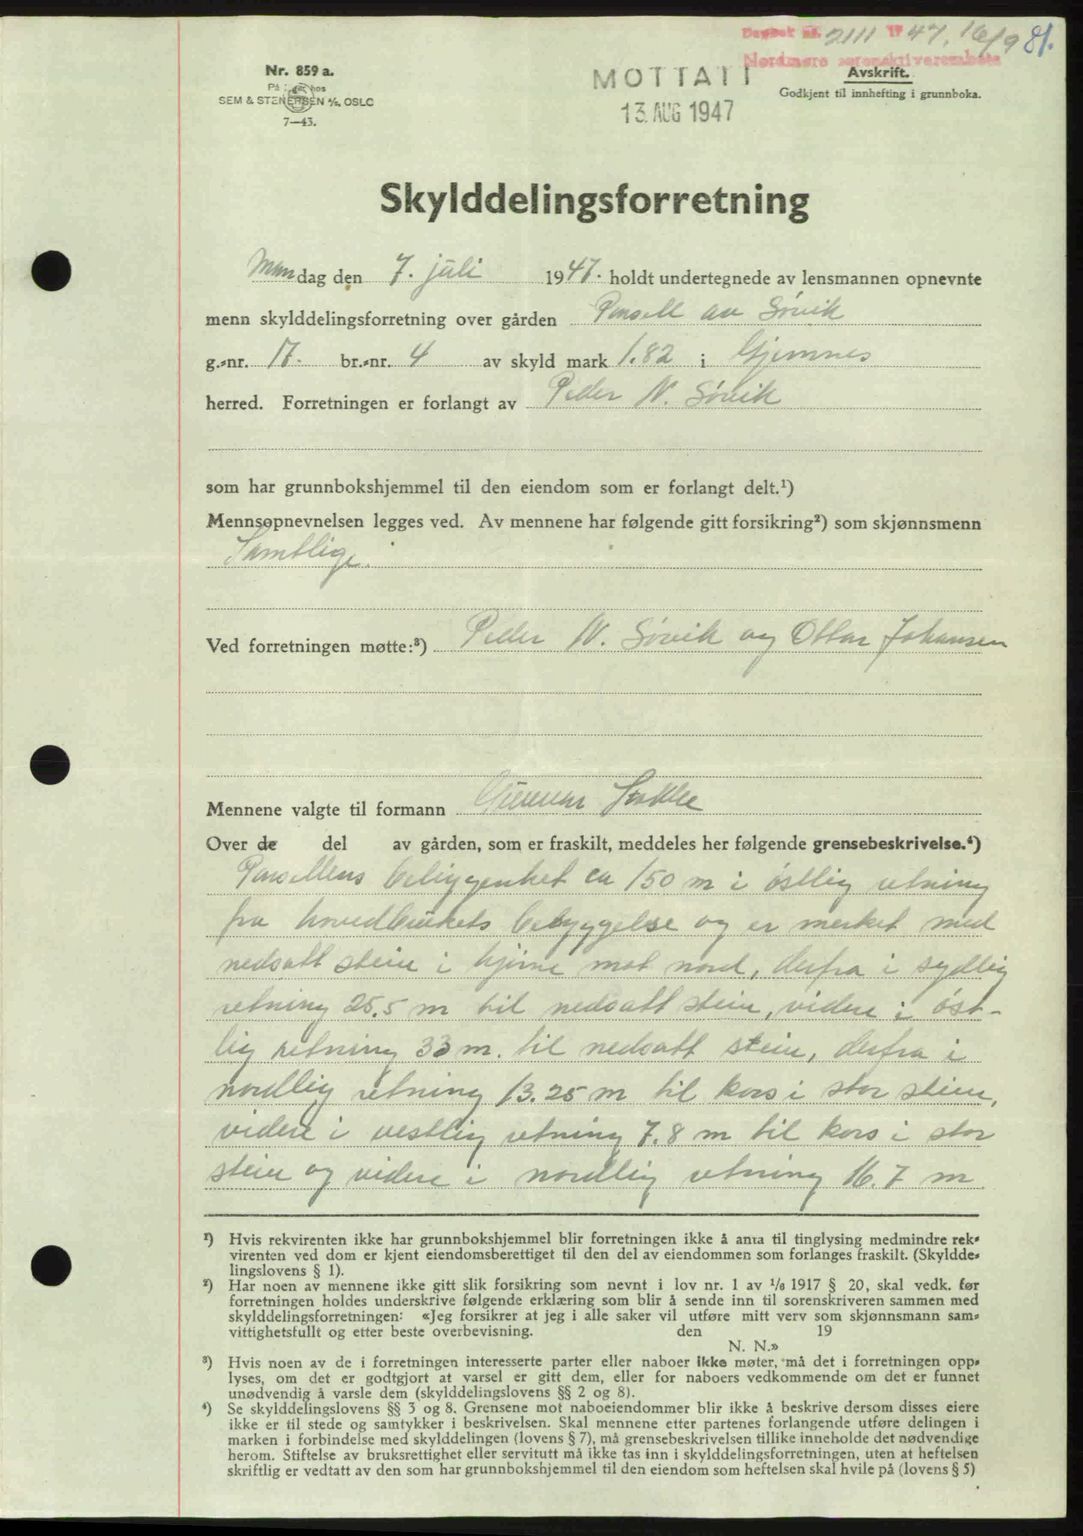 Dagbok nr. 2111 19 47, 16/9 81.
Nordmøre sorenskriverembete
Nr. 859 a.
På lager hos
SEM & STENERSEN A/S, OSLO
7—43.
MOTTATT
13. AUG 1947
Avskrift.
Godkjent til innhefting i grunnboka.
Skylddelingsforretning
Mandag den 7. juli 1947. holdt undertegnede av lensmannen opnevnte
menn skylddelingsforretning over gården Parsell av Søvik
g.-nr. 17. br.-nr. 4 av skyld mark 1.82 i Gjemnes
herred. Forretningen er forlangt av Peder N. Søvik
som har grunnbokshjemmel til den eiendom som er forlangt delt.¹)
Mennsopnevnelsen legges ved. Av mennene har følgende gitt forsikring²) som skjønnsmenn
Samtlige.
Ved forretningen møtte:³) Peder N. Søvik og Ottar Johansen
Mennene valgte til formann Gunnar
Over de del av gården, som er fraskilt, meddeles her følgende grensebeskrivelse.⁴)
Parsellens beliggenhet ca 150 m i østlig retning
fra hovedbrukets bebyggelse og er merket med
nedsatt stein i hjørne mot nord, derfra i sydlig
retning 25.5 m til nedsatt stein, videre i øst-
lig retning 33 m. til nedsatt stein, derfra i
nordlig retning 13.25 m til kors i stor stein,
videre i vestlig retning 7.8 m til kors i stor
stein og videre i nordlig retning 16.7 m
¹) Hvis rekvirenten ikke har grunnbokshjemmel blir forretningen ikke å anta til tinglysing medmindre rek-
virenten ved dom er kjent eiendomsberettiget til den del av eiendommen som forlanges fraskilt. (Skyldde-
lingslovens § 1).
²) Har noen av mennene ikke gitt slik forsikring som nevnt i lov nr. 1 av 1/6 1917 § 20, skal vedk. før
forretningen holdes underskrive følgende erklæring som blir å sende inn til sorenskriveren sammen med
skylddelingsforretningen: «Jeg forsikrer at jeg i alle saker vil utføre mitt verv som skjønnsmann sam-
vittighetsfullt og etter beste overbevisning. den 19
N. N.»
³) Hvis noen av de i forretningen interesserte parter eller naboer ikke møter, må det i forretningen opp-
lyses, om det er godtgjort at varsel er gitt dem, eller for naboers vedkommende om det er funnet
unødvendig å varsle dem (skylddelingslovens §§ 2 og 8).
⁴) Se skylddelingslovens §§ 3 og 8. Grensene mot naboeiendommer blir ikke å beskrive dersom disses eiere
ikke er til stede og samtykker i beskrivelsen. Skal mennene etter partenes forlangende utføre delingen i
marken i forbindelse med skylddelingen (lovens § 7), må grensebeskrivelsen tillike inneholde det nødvendige
herom. Stiftelse av bruksrettighet eller servitutt må ikke tas inn i skylddelingsforretningen, uten at heftelsen
skriftlig er vedtatt av den som har grunnbokshjemmel til den eiendom som heftelsen skal hvile på (lovens § 5)